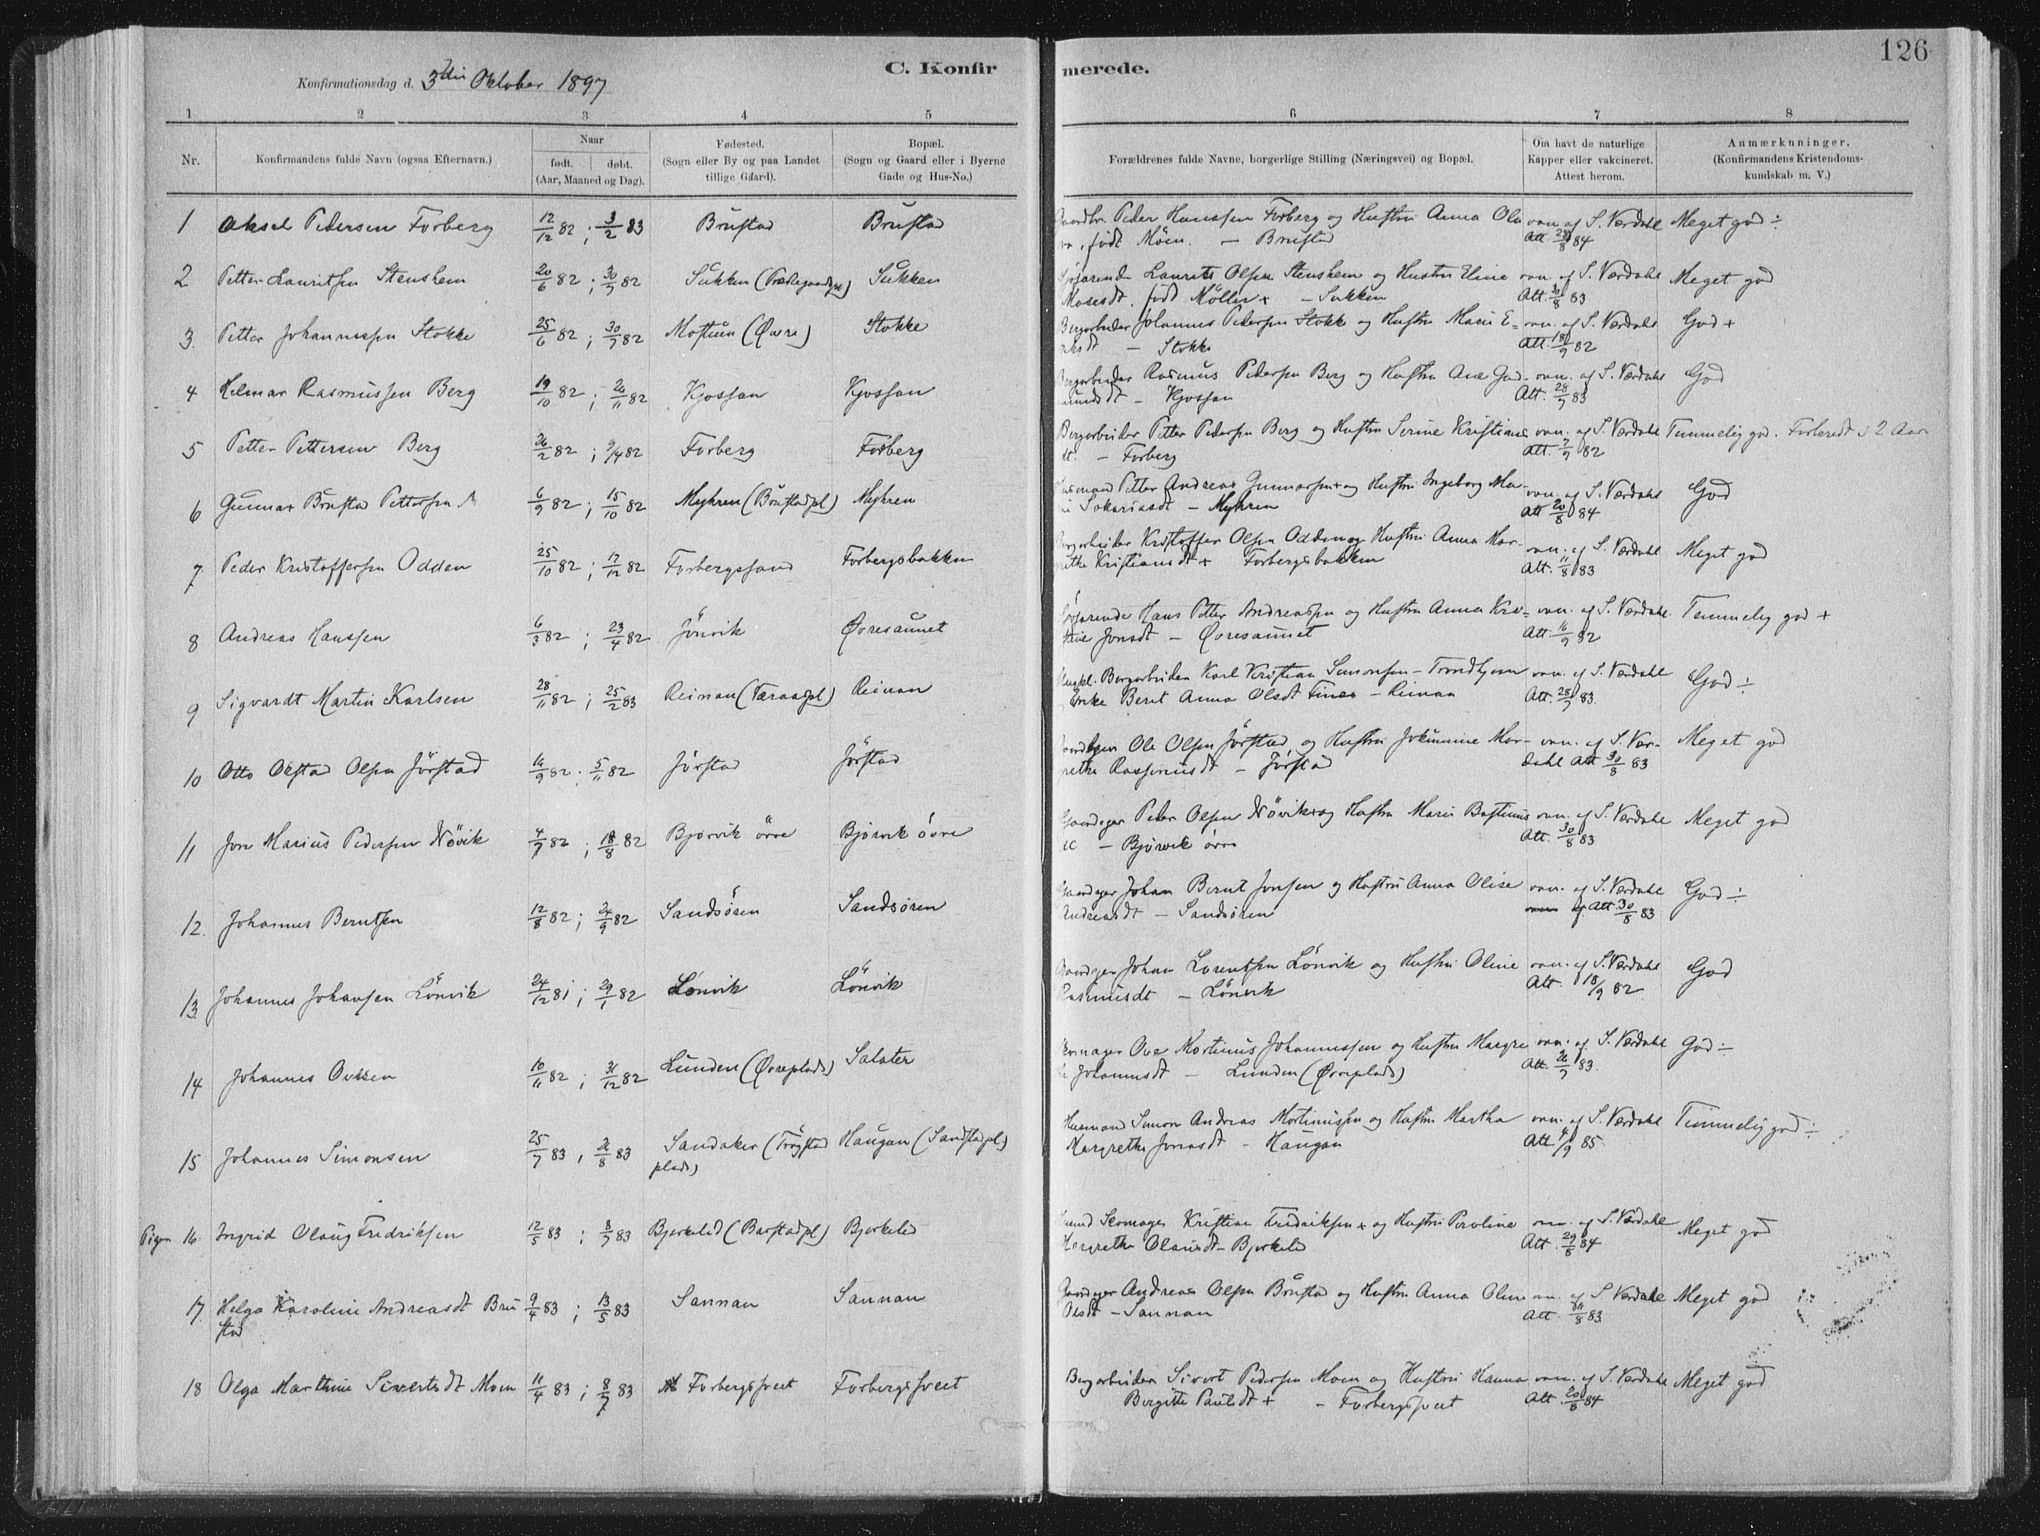 126
C. Konfirmerede.
Konfirmationsdag d. 3die Oktober 1897
1 2 3 4 5 6 7 8
Nr. Konfirmandens fulde Navn (ogsaa Efternavn.) Naar født. døbt. (Aar, Maaned og Dag). Fødested. (Sogn eller By og paa Landet tillige Gaard). Bopæl. (Sogn og Gaard eller i Byerne Gade og Hus-No.) Forældrenes fulde Navne, borgerlige Stilling (Næringsvei) og Bopæl. Om havt de naturlige Kopper eller vakcineret. Attest herom. Anmærkninger. (Konfirmandens Kristendomskundskab m. V.)
1 Aksel Pedersen Forberg 12/12 82 ; 3/2 83 Brustad Brustad Peder Hanssen Forberg og Hustru Anna Ola født Möen. – Brustad vac. af S. Værdahl Att. 84 Meget god ÷
2 Petter Lauritsen Stenshem 20/6 82 ; 30/7 82 Sukken Sukken Laurits Olsen Stenshem og Hustru Eline Mosesdt. født Möller + – Sukken vac. af S. Værdahl Att. 30/8 83 Meget god
3. Petter Johannessen Stokke 25/6 82 ; 30/7 82 Stokke Bergarbeider Johannes Pedersen Stokke og Hustru Marie E= – Stokke vac. af S. Værdahl Att. 18/9 82 God +
4 Helmar Rasmussen Berg 19/10 82 ; 26/11 82 Kjossan Kjossan Bergarbeider Rasmus Pedersen Berg og Hustru Ane – Kjossan vac. af S. Værdahl Att. 28/7 83 God
5 Petter Pettersen Berg 26/2 82 ; 9/4 82 Forberg Forberg Bergarbeider Petter Pedersen Berg og Hustru Serine Kristians dt. – Forberg vac. af S. Værdahl Att. 82 Temmelig god. 2 Aar
6 Gunnar Brustad Pettersen 6/9 82 ; 15/10 82 Myhren (Brustadpl) Myhren Husmand Petter Andreas Gunnarsen + og Hustru Ingeborg Ma- – Myhren vac. af S. Værdahl Att. 20/8 84 God
7. Peder Kristoffersen Odden 25/10 82 ; 17/12 82 Forbergssand Forbergsbakken Bergarbeider Kristoffer Olsen Odden og Hustru Anna Mar- Kristiansdt + Forbergsbakken vac. af S. Værdahl Att. 11/8 83 Meget god
8 Andreas Hanssen 6/3 82 ; 23/4 82 Jönvik Øvresaunet Hans Petter Andreassen og Hustru Anna Jonsdt – Øvresaunet vac. af S. Værdahl. Att. 16/9 82 Temmelig god +
9 Sigvardt Martin Karlsen 28/11 82 ; 25/2 83 Reinan Reinan Bergarbeider Karl Kristian Simonsen – Trondhjem Enke Berit Anna Olsdt – Reinan vac. af S. Værdahl Att. 28/7 83. God ÷
10 Otto Olstad Olsen Jörstad 16/9 82. 5/11 82 Jörstad Jörstad Ole Olsen Jörstad og Hustru Jokumine Mar- Rasmusdt – Jörstad vac. af S. Værdahl Att 30/8 83 Meget god
11 Jon Marius Pedersen Növik 4/7 82 ; 18/8 82 Bjørvik övre Bjørvik övre Gaardeier Peder Olsen Növik + og Hustru Marie – Bjørvik övre vac. af S. Værdahl Att. 30/8 83 Meget god
12. Johannes Berntsen 12/8 82 ; 24/9 82 Sandsören Sandsören Gaardeier Johan Bernt Jonsen og Hustru Anna Olise Andreasdt – Sandsören vac. af S. Værdahl Att 30/8 83 God ÷
13. Johannes Johansen Lönvik 24/12 81 ; 29/1 82 Lönvik Lönvik Gaardeier Johan Lorentsen Lönvik og Hustru Oline Rasmusdt – Lönvik vac. af S. Værdahl Att. 18/9 82 God
14 Johannes Ovesen 10/11 82 ; 31/12 82 Lunden (Øvreplads) Salater Skomager Ove Mortinus Johannessen og Hustru Margre Johannesdt – Lunden (Øvreplads) vac. af S. Værdahl Att. 26/7 83. God ÷
15 Johannes Simonsen 25/7 83 , 26/8 83 Sandaker (Trøgstad plads) Haugan (Sandstadpl.) Husmand Simon Andreas Mortinussen og Hustru Martha Margrethe Jonasdt – Haugan vac. af S. Værdahl Att. 4/9 85. Temmelig god ÷
Piger 16. Ingrid Olaug Fredriksen 12/5 83 ; 8/7 83 Bjerkelid (Barstadpl) Bjerkelid Skomager Kristian Fredriksen + og Hustru Peroline Margrethe Olausdt – Bjerkelid vac. af S. Værdahl Att. 29/8 84 Meget god
17. Helga Karoline Andreasdt Brustad 9/4 83 ; 13/5 83 Sannan Sannan Gaardeier Andreas Olsen Brustad og Hustru Anna Oline Olsdt – Sannan vac. af S. Værdahl Att. 83 Meget god
18 Olga Marthine Sivertsdt Moen 11/4 83 ; 8/7 83 Forbergsfveet Forbergsfveet Bergarbeider Sivert Pedersen Moen og Hustru Hanna Birgitte Paulsdt + – Forbergsfveet vac. af S. Værdahl Att. 20/8 84 Meget god